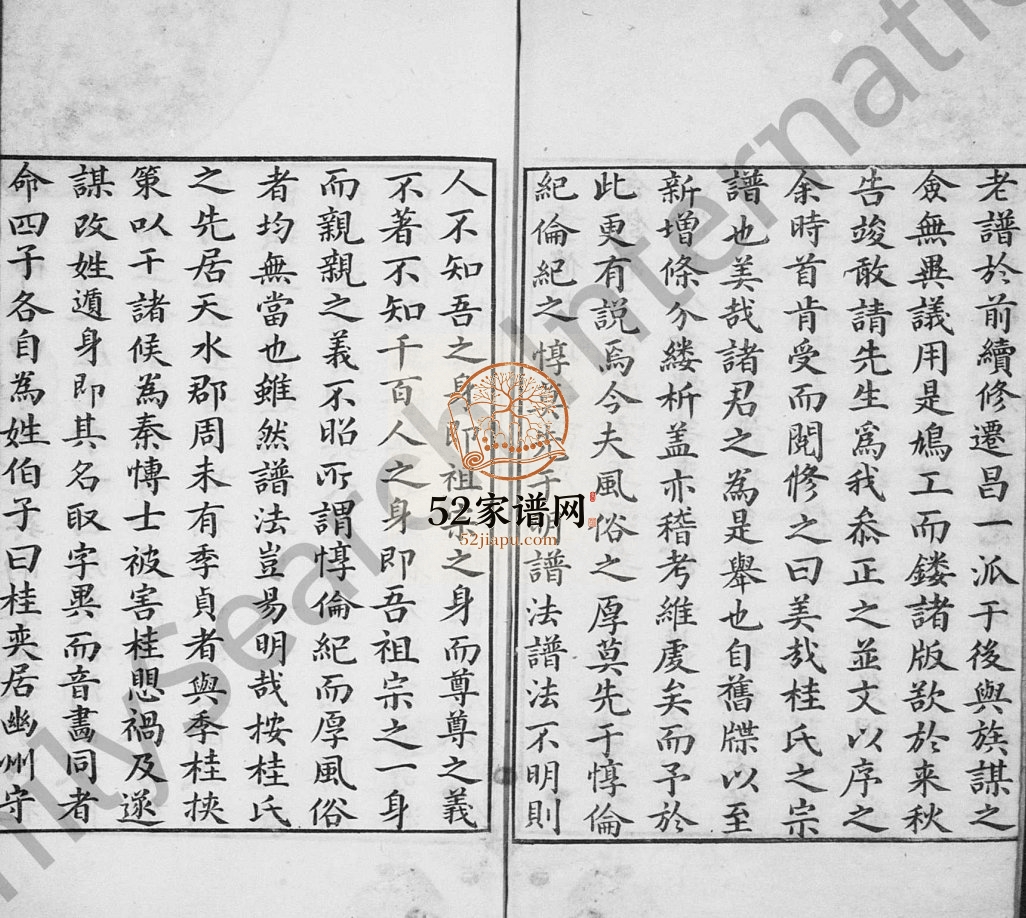 老譜於前續修遷昌一派于後與族謀之
僉無異議用是鳩工而鏤諸版欲於來秋
告竣敢請先生爲我叅正之並文以序之
余時首肯受而閱修之曰美哉桂氏之宗
譜也美哉諸君之為是舉也自舊牒以至
新增條分縷析盖亦稽考維虔矣而予於
此更有説焉今夫風俗之厚莫先于惇倫
紀倫紀之惇莫先于明譜法譜法不明則
人不知吾之身即祖之身而尊尊之義
不著不知千百人之身即吾祖宗之一身
而親親之義不昭所謂惇倫紀而厚風俗
者均無當也雖然譜法豈易明哉桉桂氏
之先居天水郡周未有季貞者與季桂挾
策以干諸候為秦愽士被害桂思禍及遂
謀改姓遁身即其名取字異而音畵同者
命四子各自為姓伯子曰桂奕居幽州守
52家谱网
52jiapu.com
FamilySearch International